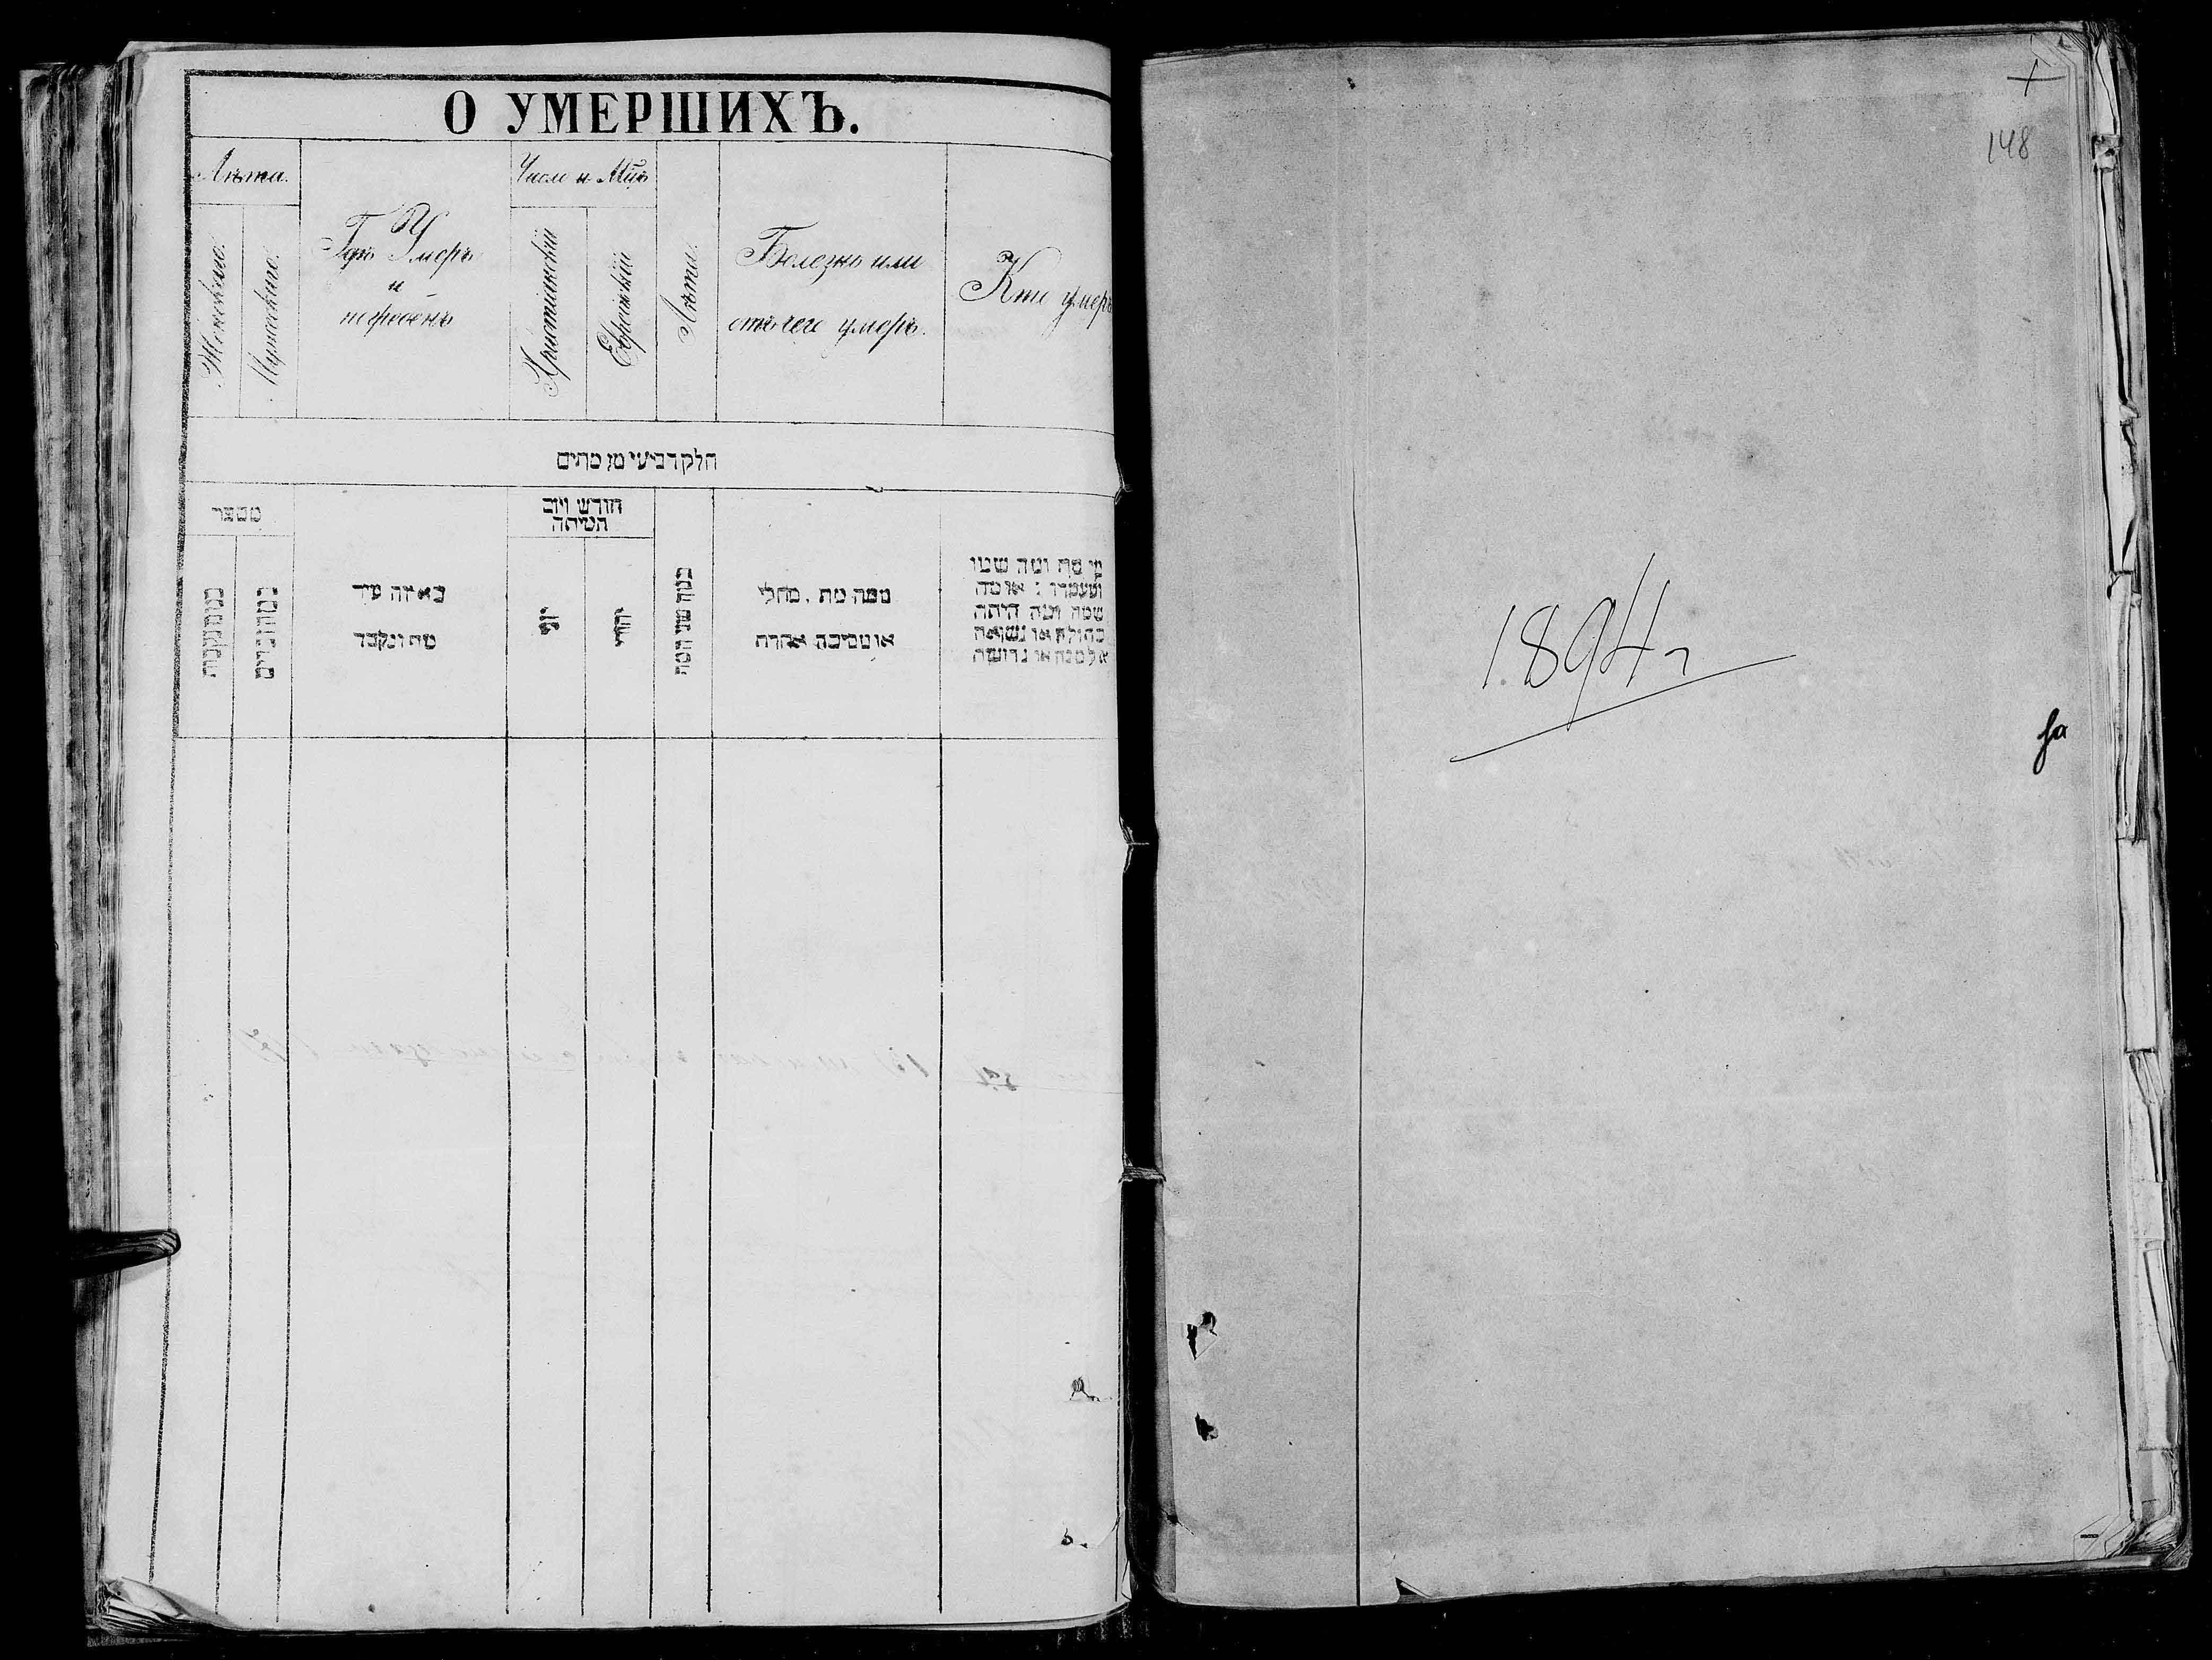 О УМЕРШИХЪ.
Лѣта.
Женскаго.
Мужескаго.
Гдѣ Умеръ
и
погребенъ
Число и Мцъ
Христіанскій
Еврейскій
Лѣта.
Болезнь или
отъ чего умеръ.
Кто умеръ
חלק רביעי מן מתים
מספר
חודש ויום
המיתה
באיזה עיר
מת ונקבר
יהודי
ממה מת, מחלי
או מסיבה אחרת
מי מת ומה שמו
ומעמדו: או מה
שמה ומה היתה
בתולה או נשואה
אלמנה או גרושה
148
1894 г